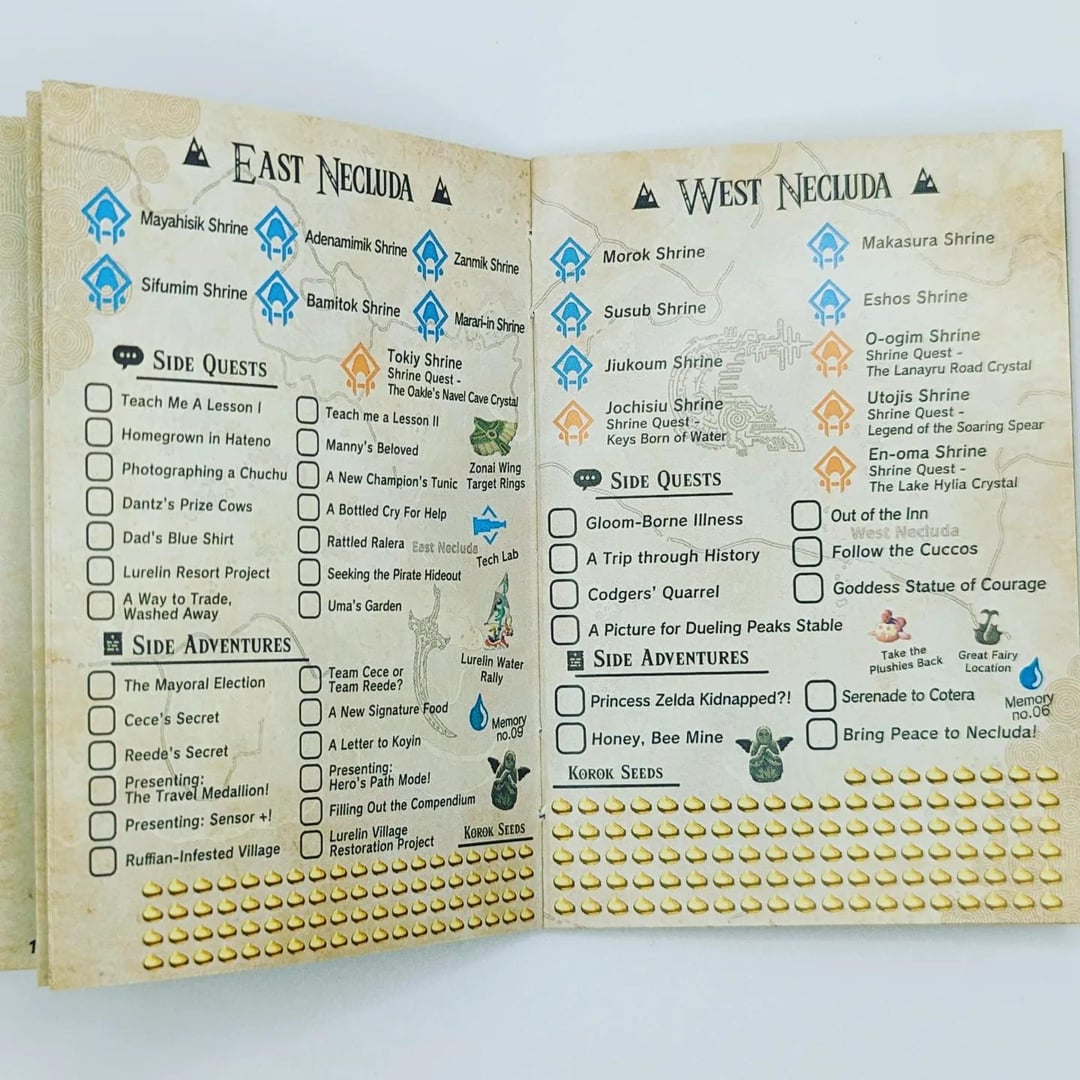 East Necluda
Mayahisik Shrine
Adenamimik Shrine
Zanmik Shrine
Sifumim Shrine
Bamitok Shrine
Marari-in Shrine
Tokiy Shrine
Shrine Quest -
The Oakle's Navel Cave Crystal
Side Quests
Teach Me A Lesson I
Homegrown in Hateno
Photographing a Chuchu
Dantz's Prize Cows
Dad's Blue Shirt
Lurelin Resort Project
A Way to Trade,
Washed Away
Teach me a Lesson II
Manny's Beloved
A New Champion's Tunic
A Bottled Cry For Help
Rattled Ralera
Seeking the Pirate Hideout
Uma's Garden
Zonai Wing
Target Rings
East Necluda
Tech Lab
Lurelin Water
Rally
Side Adventures
The Mayoral Election
Cece's Secret
Reede's Secret
Presenting:
The Travel Medallion!
Presenting: Sensor +!
Ruffian-Infested Village
Team Cece or
Team Reede?
A New Signature Food
A Letter to Koyin
Presenting:
Hero's Path Mode!
Filling Out the Compendium
Lurelin Village
Restoration Project
Memory
no.09
Korok Seeds
1
West Necluda
Morok Shrine
Makasura Shrine
Susub Shrine
Eshos Shrine
Jiukoum Shrine
O-ogim Shrine
Shrine Quest -
The Lanayru Road Crystal
Jochisiu Shrine
Shrine Quest -
Keys Born of Water
Utojis Shrine
Shrine Quest -
Legend of the Soaring Spear
En-oma Shrine
Shrine Quest -
The Lake Hylia Crystal
Side Quests
Gloom-Borne Illness
A Trip through History
Codgers' Quarrel
A Picture for Dueling Peaks Stable
Out of the Inn
West Necluda
Follow the Cuccos
Goddess Statue of Courage
Take the
Plushies Back
Great Fairy
Location
Side Adventures
Princess Zelda Kidnapped?!
Honey, Bee Mine
Serenade to Cotera
Bring Peace to Necluda!
Memory
no.06
Korok Seeds